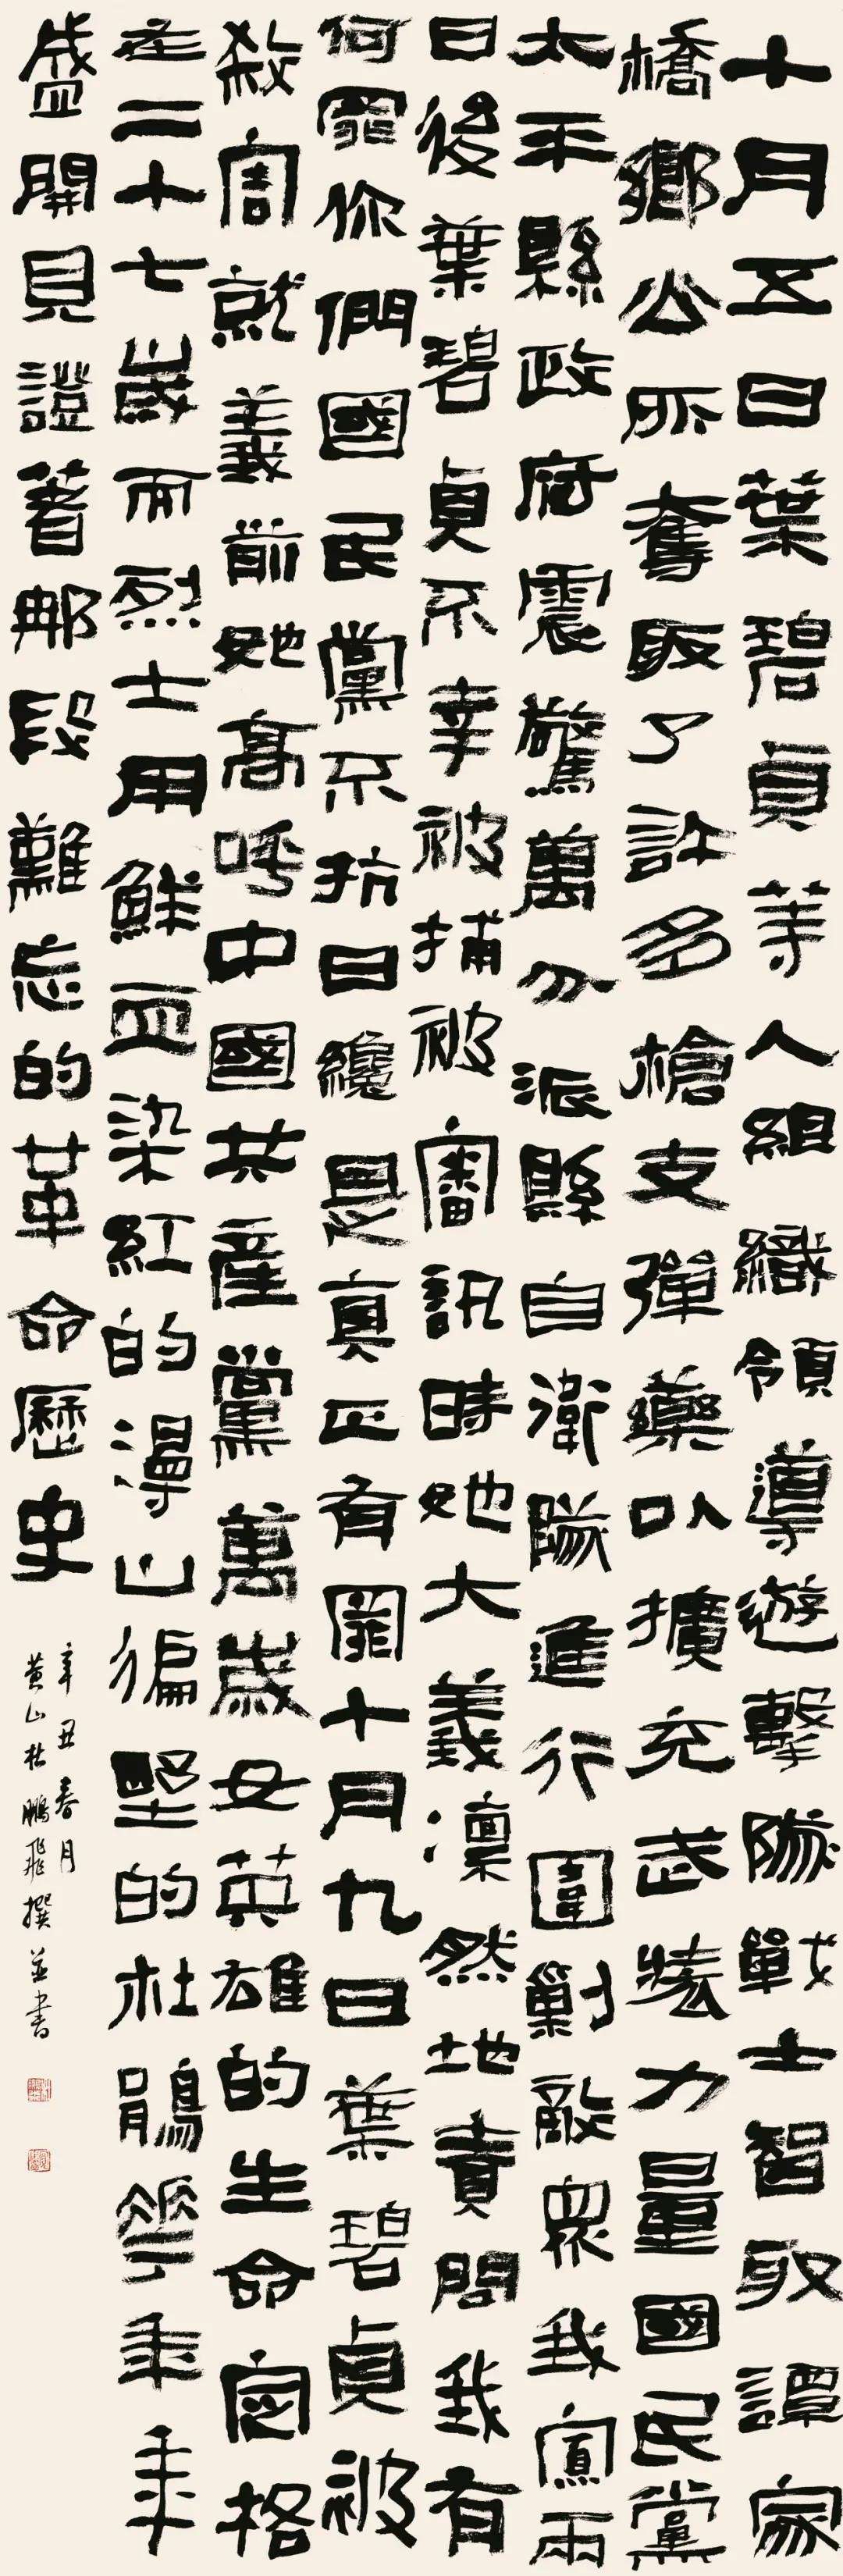 十月五日葉碧貞等人組織領導遊擊隊戰士智取譚家
橋鄉公所奪取了許多槍支彈藥以擴充武裝力量國民黨
太平縣政府震驚萬分派縣自衛隊進行圍剿敵眾我寡兩
日後葉碧貞不幸被捕被審訊時她大義凜然地責問我有
何罪你們國民黨不抗日纔是真正有罪十月九日葉碧貞被
殺害就義前她高呼中國共產黨萬歲女英雄的生命定格
在二十七歲而烈士用鮮血染紅的漫山徧野的杜鵑花年年
盛開見證著那段難忘的革命歷史
辛丑春月
黃山杜鵬飛撰並書